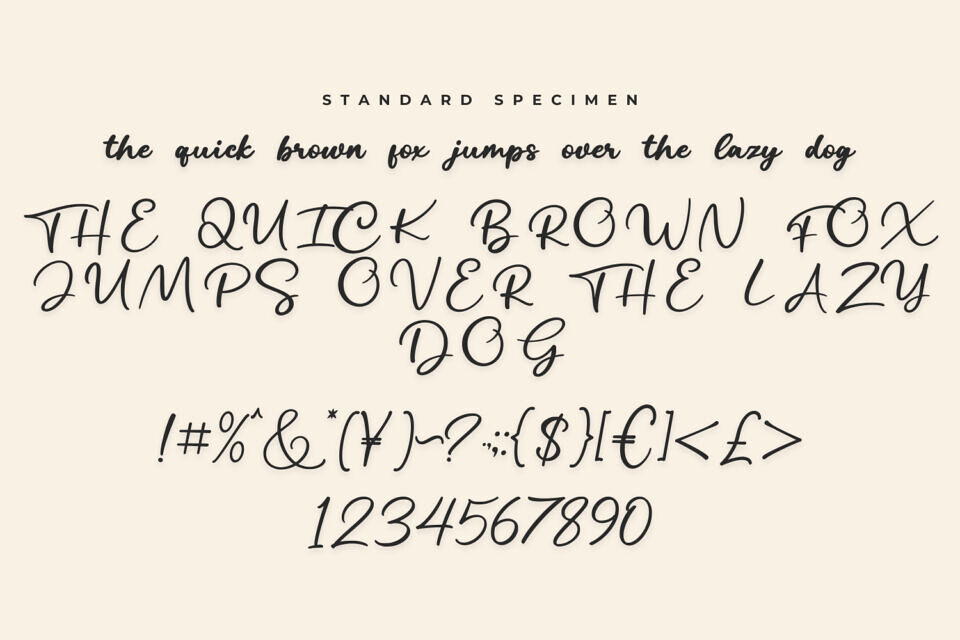 STANDARD SPECIMEN
the quick brown fox jumps over the lazy dog
THE QUICK BROWN FOX
JUMPS OVER THE LAZY
DOG
!#%^&*(¥)~?.,;:{$}[€]<£>
1234567890